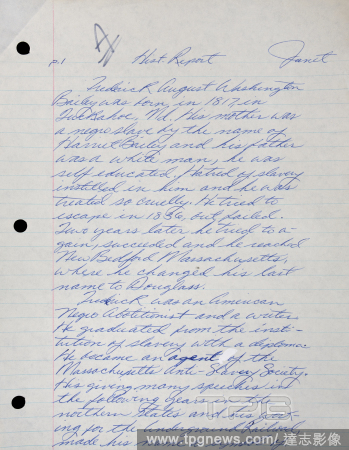 p.1 Hist Report Janet
Frederick August Washington
Bailey was born, in 1817 in
Tuckahoe, Md. His mother was
a negro slave by the name of
Harriet Bailey and his father
was a white man, he was
self educated. Hatred of slavery
instilled in him and he was
treated so cruelly. He tried to
escape in 1836, but failed.
Two years later he tried to a-
gain, succeeded and he reached
New Bedford Massachusetts,
where he changed his last
name to Douglass.
Frederick was an American
Negro Abolitionist and a writer.
He graduated from the insti-
tution of slavery with a diploma.
He became an agent of the
Massachusetts Anti-Slavery Society.
His giving many speeches in
the following years in the
northern States and his
ing for the underground Railway
made his name
www.tpgnews.com 達志影像